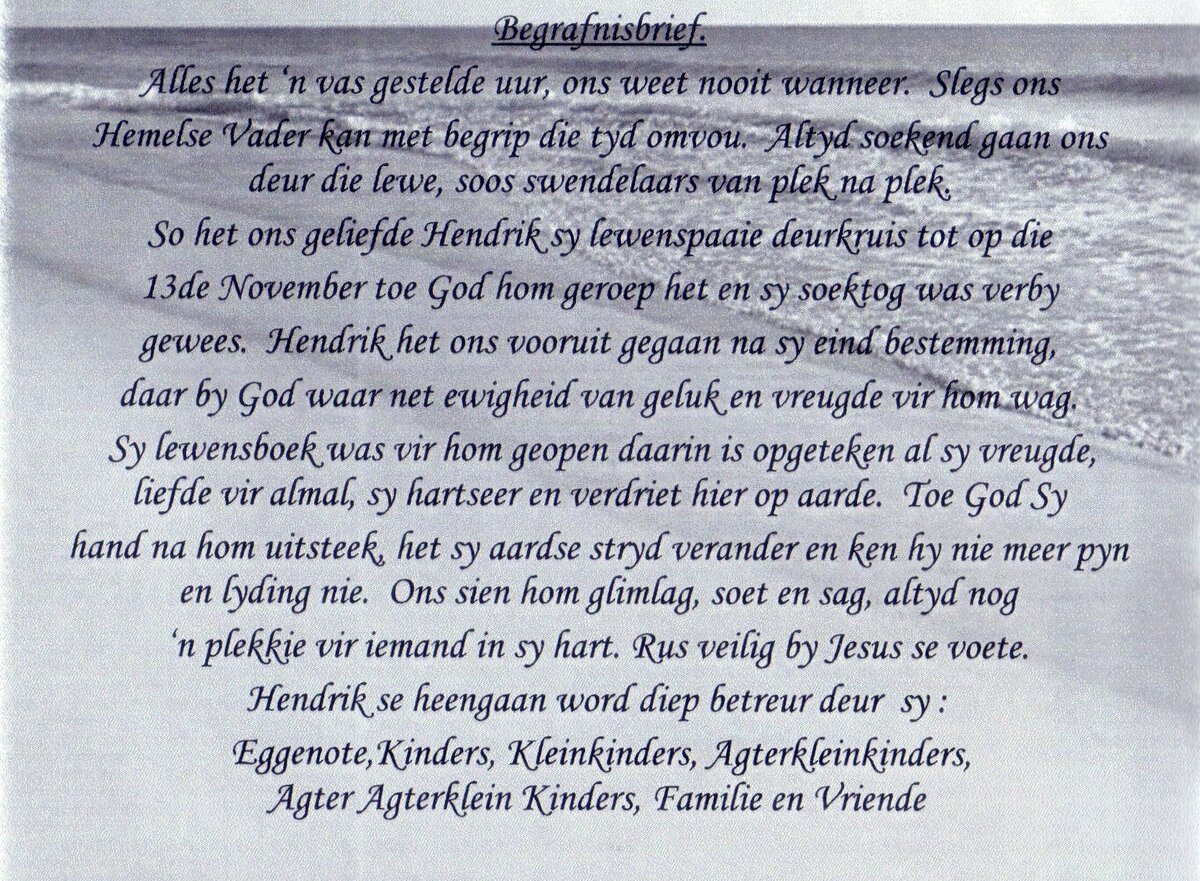 Begrafnisbrief.
Alles het ‘n vas gestelde uur, ons weet nooit wanneer.  Slegs ons
Hemelse Vader kan met begrip die tyd omvou.  Altyd soekend gaan ons
deur die lewe, soos swendelaars van plek na plek.
So het ons geliefde Hendrik sy lewenspaaie deurkruis tot op die
13de November toe God hom geroep het en sy soektog was verby
gewees.  Hendrik het ons vooruit gegaan na sy eind bestemming,
daar by God waar net ewigheid van geluk en vreugde vir hom wag.
Sy lewensboek was vir hom geopen daarin is opgeteken al sy vreugde,
liefde vir almal, sy hartseer en verdriet hier op aarde.  Toe God Sy
hand na hom uitsteek, het sy aardse stryd verander en ken hy nie meer pyn
en lyding nie.  Ons sien hom glimlag, soet en sag, altyd nog
‘n plekkie vir iemand in sy hart. Rus veilig by Jesus se voete.
Hendrik se heengaan word diep betreur deur  sy :
Eggenote,Kinders, Kleinkinders, Agterkleinkinders,
Agter Agterklein Kinders, Familie en Vriende